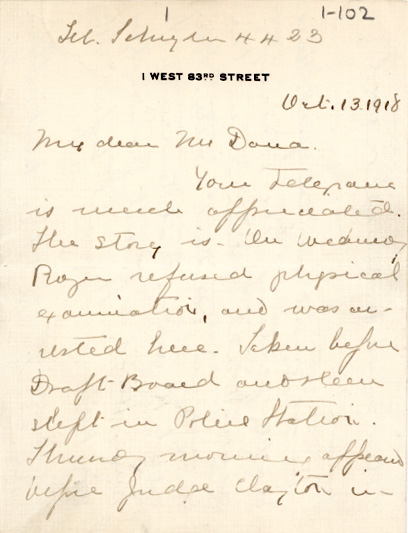 1
1-102
Tel. Schuyler 4423
1 WEST 83RD STREET
Oct. 13 1918
My dear Mr Dana.
Your telegram
is much appreciated.
The story is - On Wednesday
Roger refused physical
examination, and was ar-
rested here. Taken before
Draft-Board and then
slept in Police Station.
Thursday morning appeared
before Judge Clayton in-